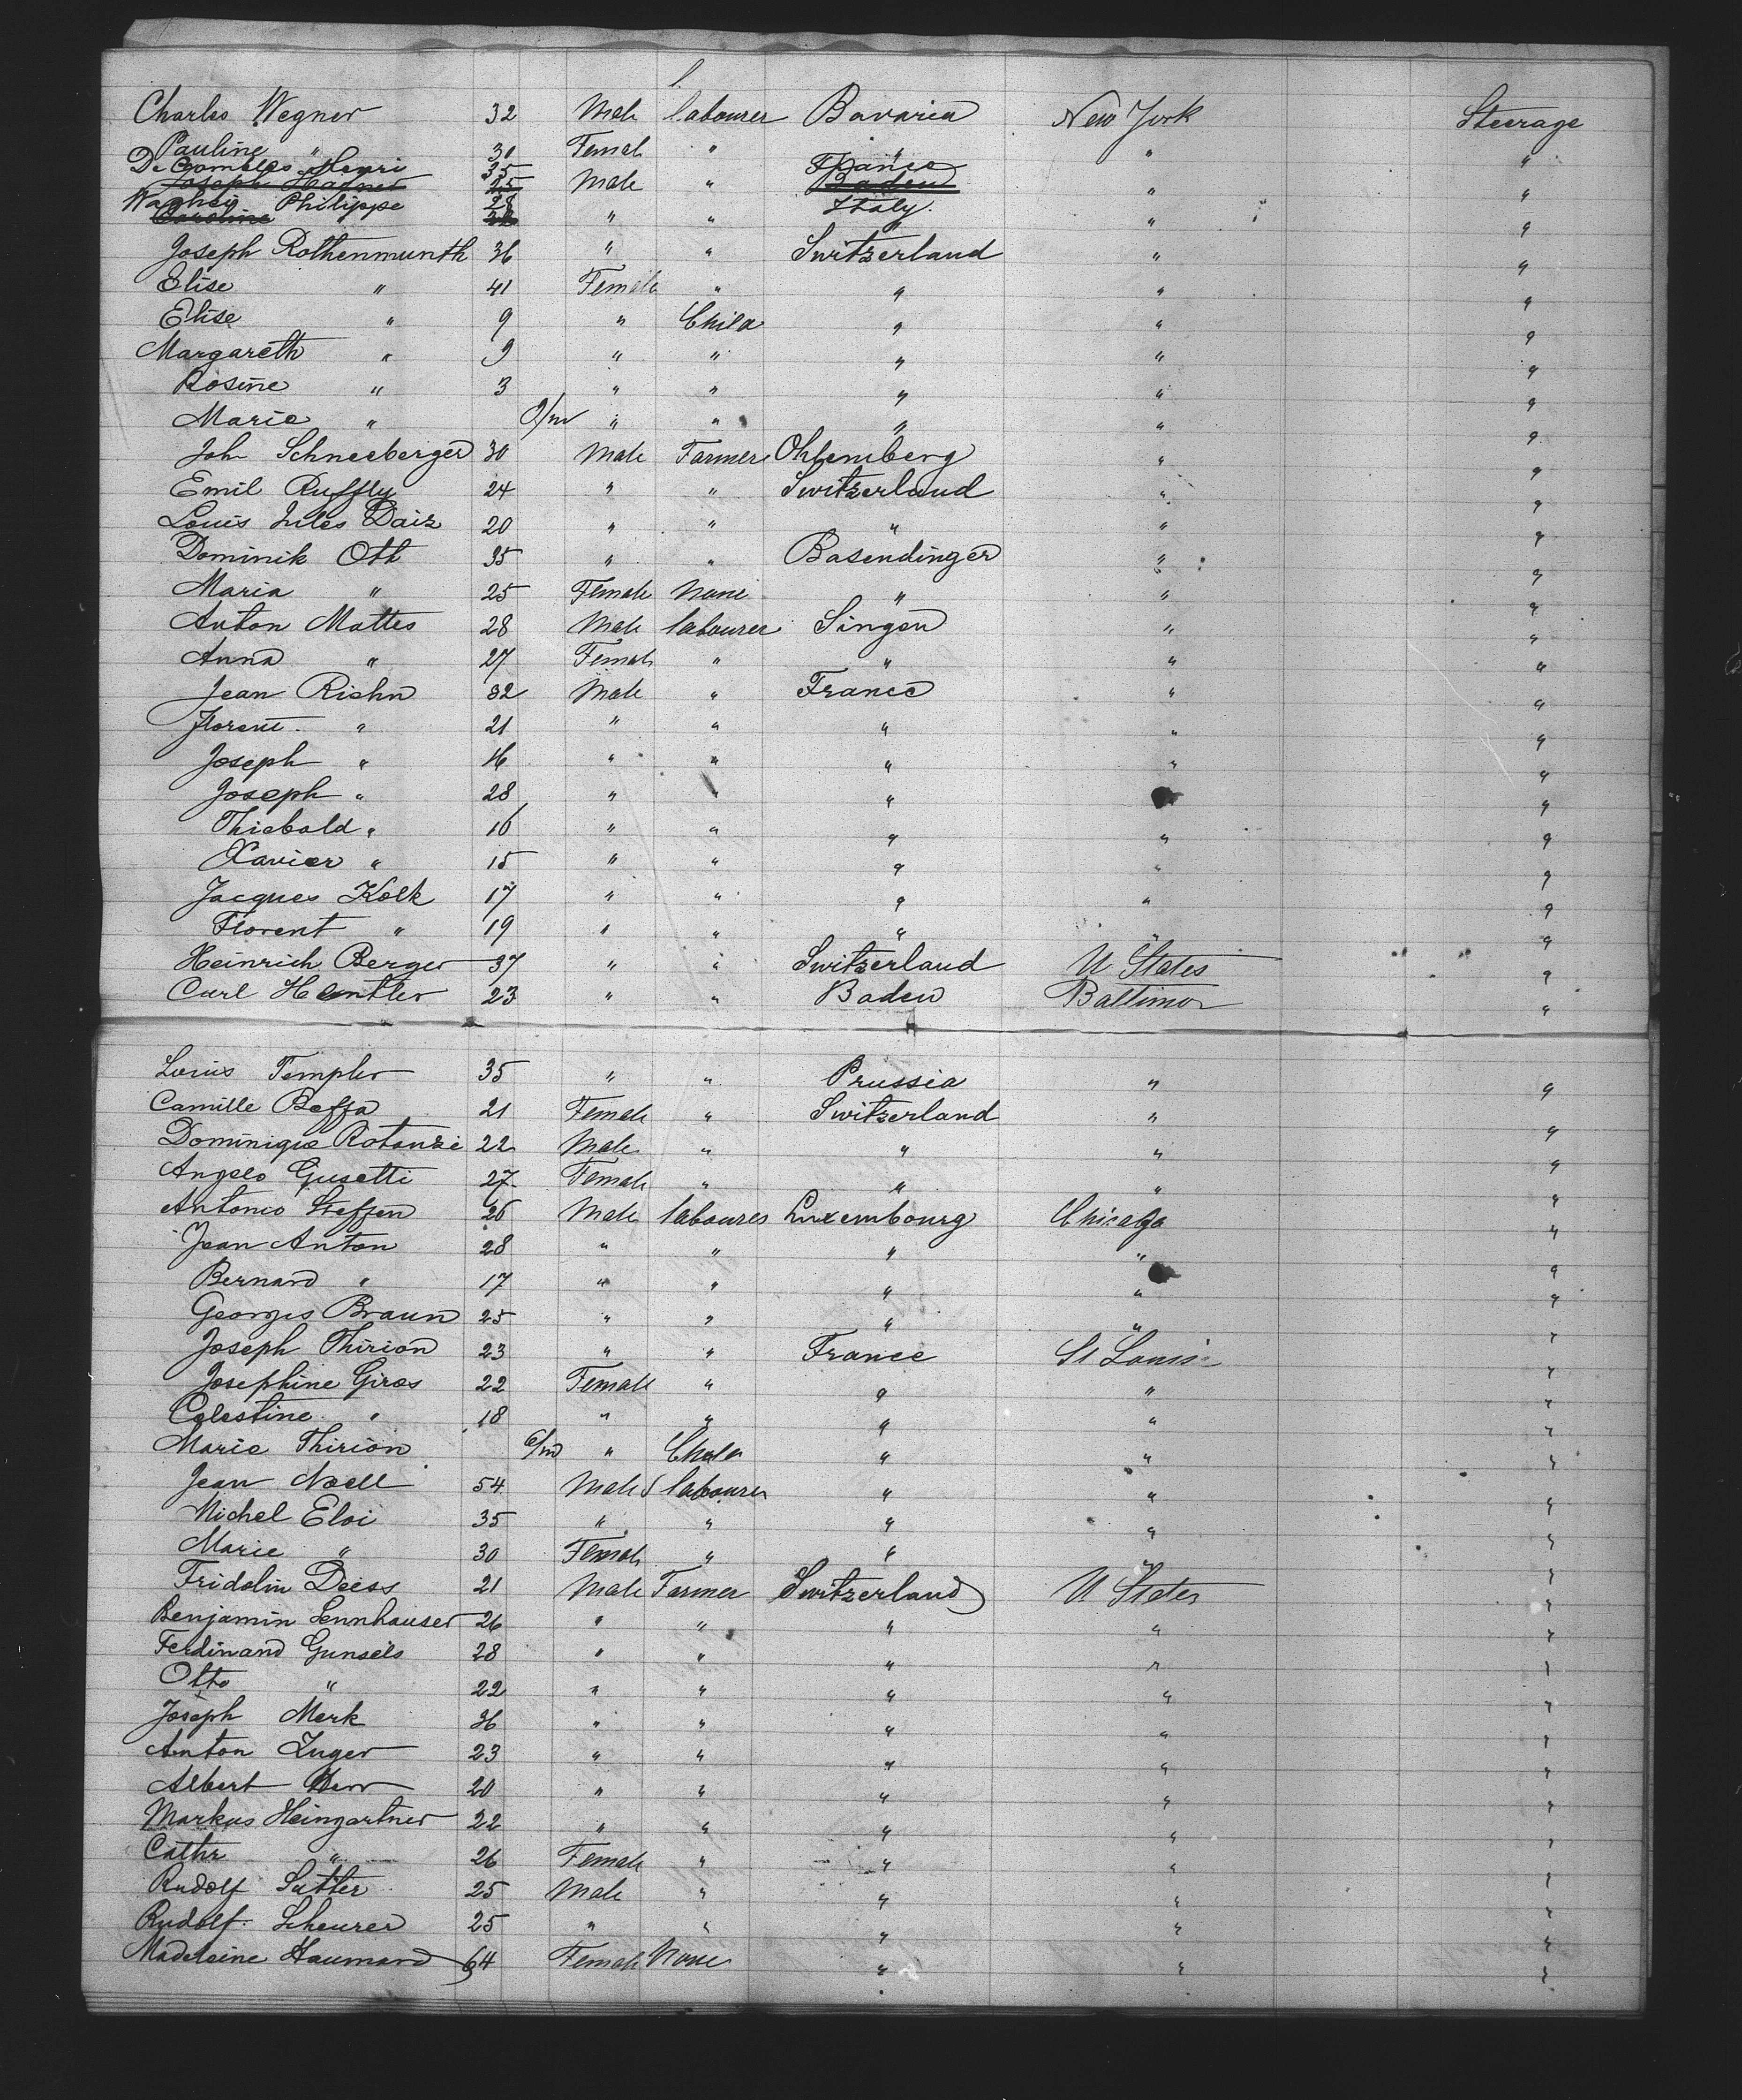 Charles Wegner 32 Male labourer Bavaria New York Steerage
Pauline " 30 Femal " " " "
De Combles Henri 35 France
Joseph Hadner 25 Male " Baden " "
Philippe 28 Italy.
Caroline " " " "
Joseph Rothenmunth 36 " " Switzerland " "
Elise " 41 Female " " " "
Elise " 9 " Child " " "
Margareth " 9 " " " " "
Rosine " 3 " " " " "
Marie " 9/m " " " " "
Joh Schneeberger 30 Male Farmer Ohlemberg " "
Emil Ruffly 24 " " Switzerland " "
Louis Jules Daiz 20 " " " " "
Dominik Ott 35 " " Basendinger " "
Maria " 25 Female None " " "
Anton Mattes 28 Male labourer Singen " "
Anna " 27 Female " " " "
Jean Rishn 32 Male " France " "
Florent " 21 " " " " "
Joseph " 46 " " " " "
Joseph " 28 " " " "
Thiebald " 16 " " " " "
Xavier " 15 " " " " "
Jacques Kolk 17 " " " " "
Florent " 19 " " " " "
Heinrich Berger 37 " " Switzerland U States "
Carl Hentler 23 " " Baden Baltimor "
Louis Templer 35 " " Prussia " "
Camille Boffa 21 Female " Switzerland " "
Dominigio Rotanzi 22 Male " " " "
Angelo Gusetti 27 Female " " " "
Antonio Steffen 26 Male labourer Luxembourg Chicago "
Jean Anton 28 " " " " "
Bernard " 17 " " " " "
Georges Braun 25 " " " " "
Joseph Thirion 23 " " France St Louis "
Josephine Giros 22 Female " " " "
Celestine " 18 " " " " "
Marie Thirion 6/m " Child " " "
Jean Noell 54 Male labourer " " "
Michel Eloi 35 " " " " "
Marie " 30 Female " " " "
Fridolin Deiss 21 Male Farmer Switzerland U States "
Benjamin Sennhauser 26 " " " " "
Ferdinand Gunsels 28 " " " " "
Otto " 22 " " " " "
Joseph Merk 36 " " " " "
Anton Zuger 23 " " " " "
Albert 20 " " " " "
Markus Heingartner 22 " " " " "
Cathr " 26 Female " " " "
Rudolf Sutter 25 Male " " " "
Rudolf Scheurer 25 " " " " "
Madeleine Haumard 64 Female None " " "